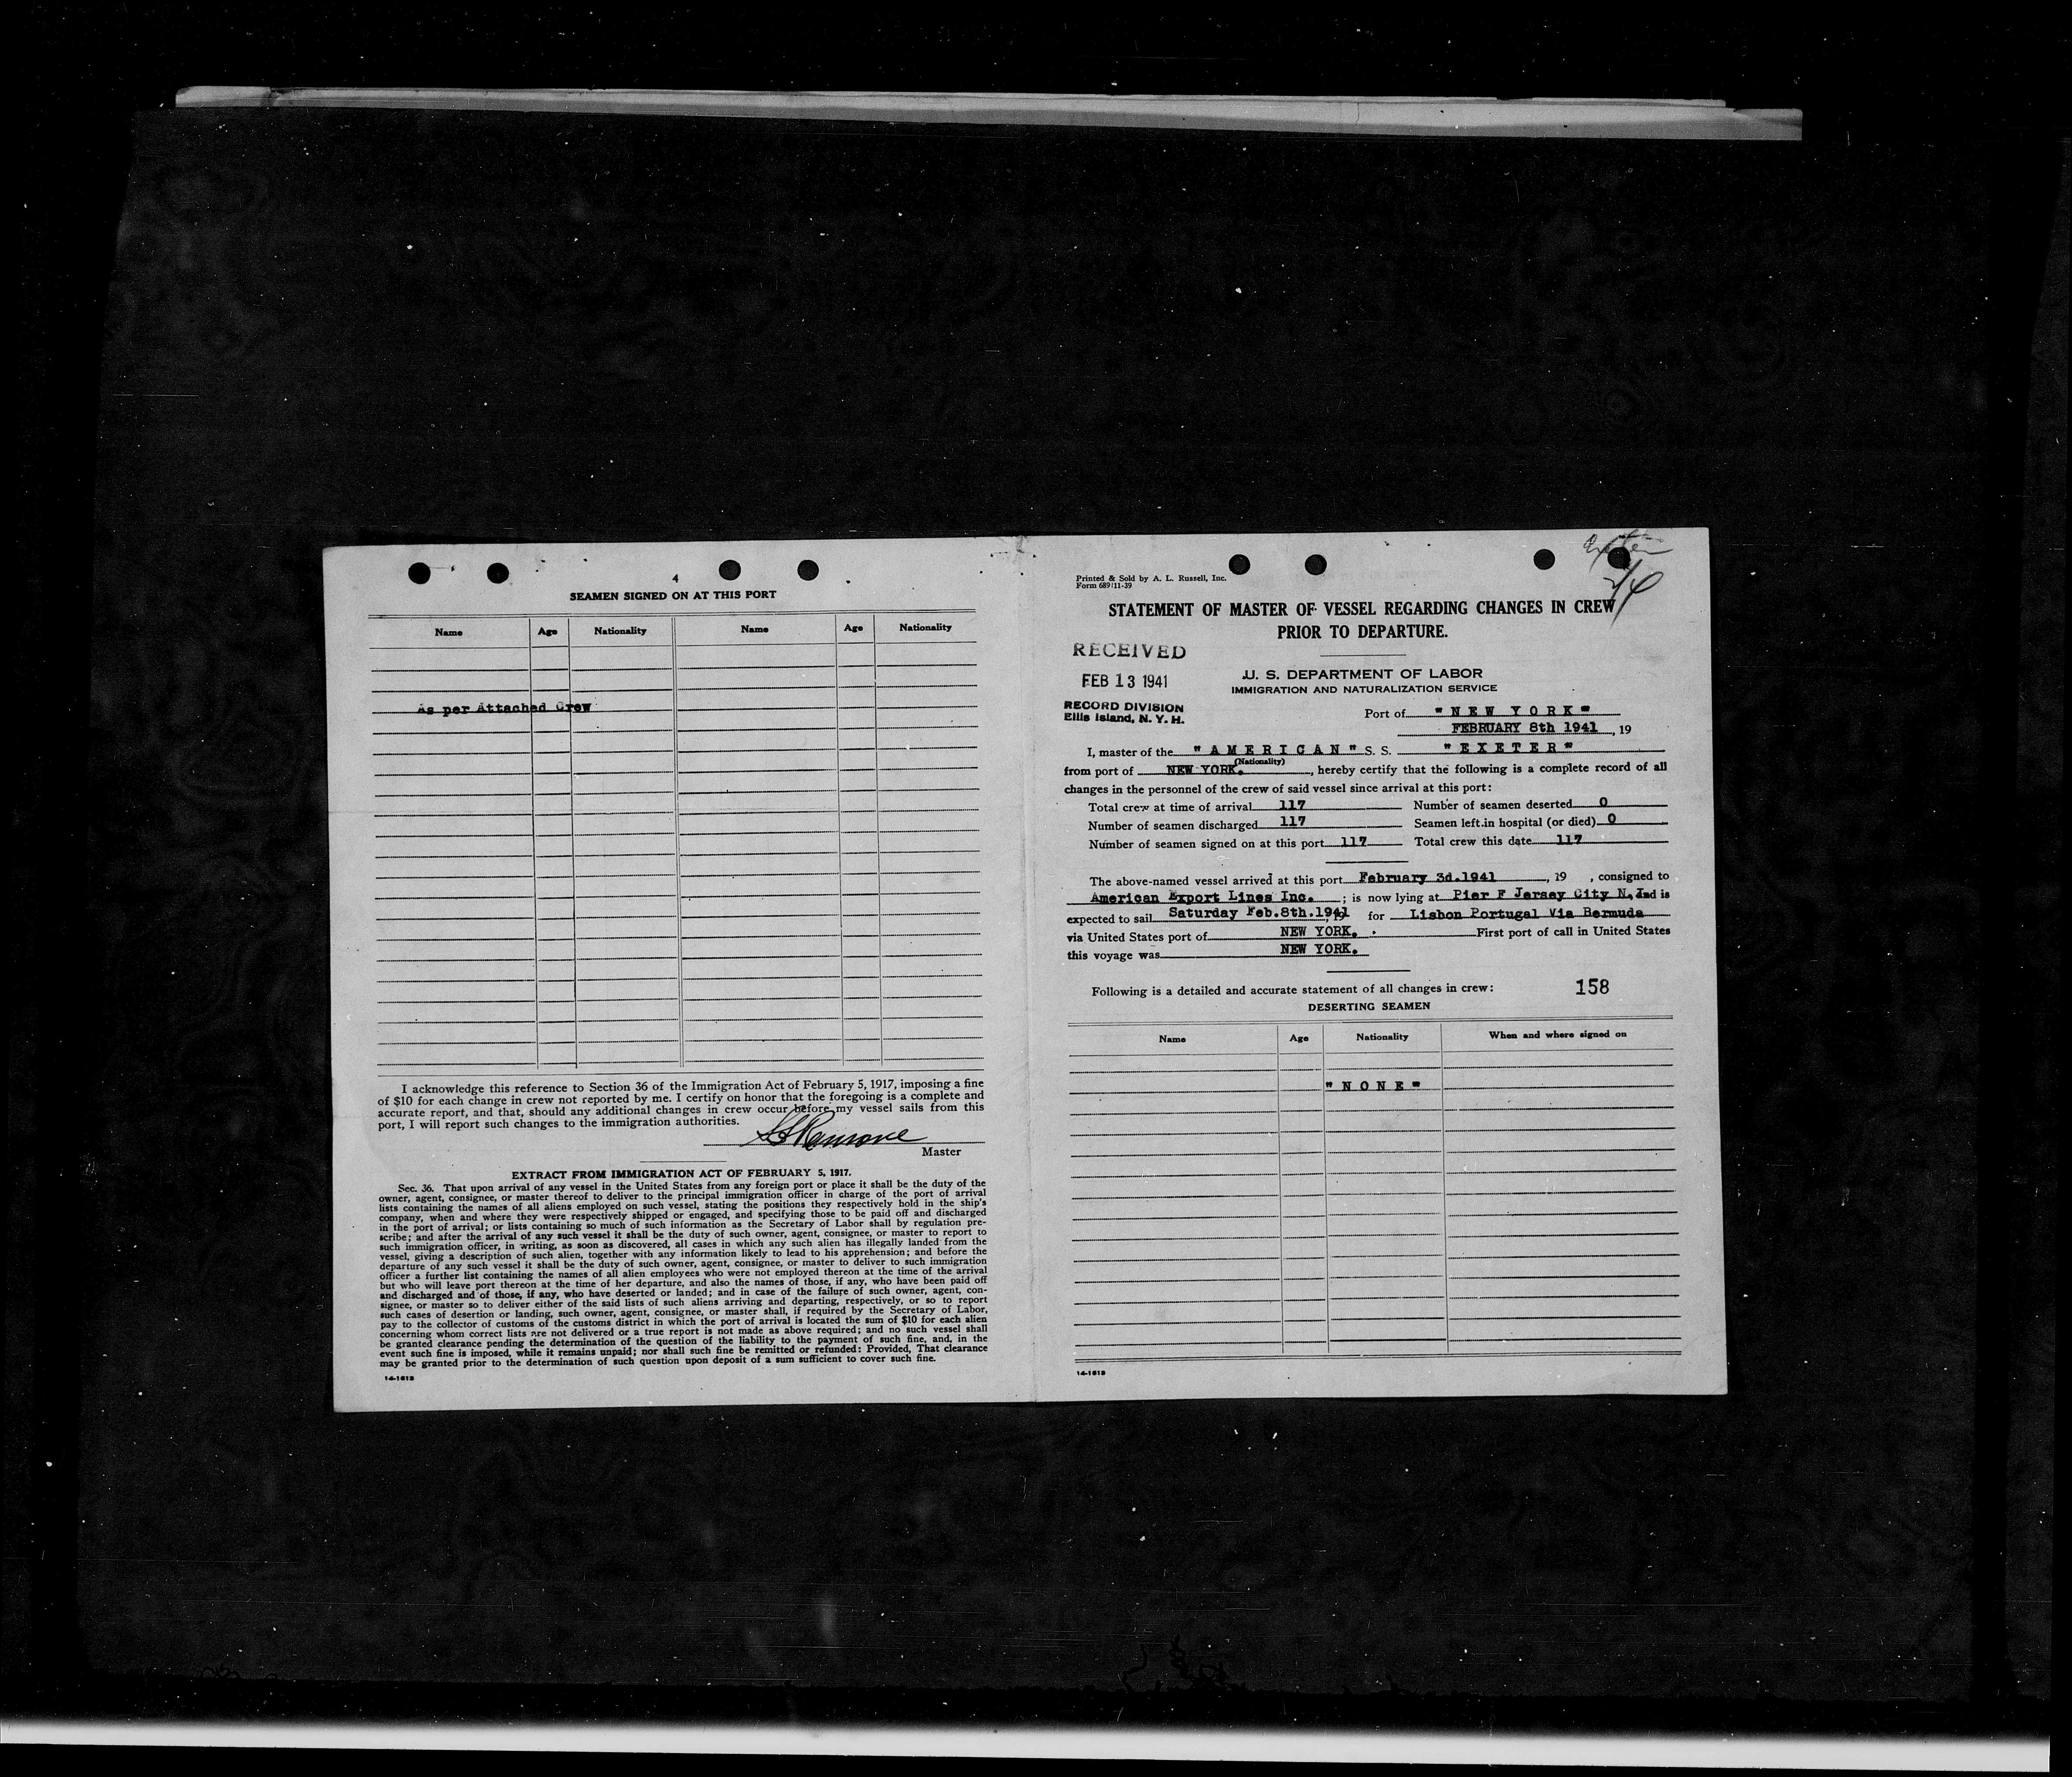 4
SEAMEN SIGNED ON AT THIS PORT
Name Age Nationality Name Age Nationality
As per Attached Crew
I acknowledge this reference to Section 36 of the Immigration Act of February 5, 1917, imposing a fine
of $10 for each change in crew not reported by me. I certify on honor that the foregoing is a complete and
accurate report, and that, should any additional changes in crew occur before my vessel sails from this
port, I will report such changes to the immigration authorities.
Master
EXTRACT FROM IMMIGRATION ACT OF FEBRUARY 5, 1917.
Sec. 36. That upon arrival of any vessel in the United States from any foreign port or place it shall be the duty of the
owner, agent, consignee, or master thereof to deliver to the principal immigration officer in charge of the port of arrival
lists containing the names of all aliens employed on such vessel, stating the positions they respectively hold in the ship's
company, when and where they were respectively shipped or engaged, and specifying those to be paid off and discharged
in the port of arrival; or lists containing so much of such information as the Secretary of Labor shall by regulation pre-
scribe; and after the arrival of any such vessel it shall be the duty of such owner, agent, consignee, or master to report to
such immigration officer, in writing, as soon as discovered, all cases in which any such alien has illegally landed from the
vessel, giving a description of such alien, together with any information likely to lead to his apprehension; and before the
departure of any such vessel it shall be the duty of such owner, agent, consignee, or master to deliver to such immigration
officer a further list containing the names of all alien employees who were not employed thereon at the time of the arrival
but who will leave port thereon at the time of her departure, and also the names of those, if any, who have been paid off
and discharged and of those, if any, who have deserted or landed; and in case of the failure of such owner, agent, con-
signee, or master so to deliver either of the said lists of such aliens arriving and departing, respectively, or so to report
such cases of desertion or landing, such owner, agent, consignee, or master shall, if required by the Secretary of Labor,
pay to the collector of customs of the customs district in which the port of arrival is located the sum of $10 for each alien
concerning whom correct lists are not delivered or a true report is not made as above required; and no such vessel shall
be granted clearance pending the determination of the question of the liability to the payment of such fine, and, in the
event such fine is imposed, while it remains unpaid; nor shall such fine be remitted or refunded: Provided, That clearance
may be granted prior to the determination of such question upon deposit of a sum sufficient to cover such fine.
14-1613
Exeter
Printed & Sold by A. L. Russell, Inc.
Form 689 11-39
STATEMENT OF MASTER OF VESSEL REGARDING CHANGES IN CREW
PRIOR TO DEPARTURE.
RECEIVED
FEB 13 1941
RECORD DIVISION
Ellis Island, N. Y. H.
U. S. DEPARTMENT OF LABOR
IMMIGRATION AND NATURALIZATION SERVICE
Port of "NEW YORK"
FEBRUARY 8th 1941, 19
I, master of the "AMERICAN" S. S. "EXETER"
(Nationality)
from port of NEW YORK., hereby certify that the following is a complete record of all
changes in the personnel of the crew of said vessel since arrival at this port:
Total crew at time of arrival 117 Number of seamen deserted 0
Number of seamen discharged 117 Seamen left in hospital (or died) 0
Number of seamen signed on at this port 117 Total crew this date 117
The above-named vessel arrived at this port February 3d.1941, 19 , consigned to
American Export Lines Inc. ; is now lying at Pier F Jersey City N.J. and is
expected to sail Saturday Feb.8th.1941 for Lisbon Portugal Via Bermuda
via United States port of NEW YORK. First port of call in United States
this voyage was NEW YORK.
Following is a detailed and accurate statement of all changes in crew: 158
DESERTING SEAMEN
Name Age Nationality When and where signed on
"NONE"
14-1613